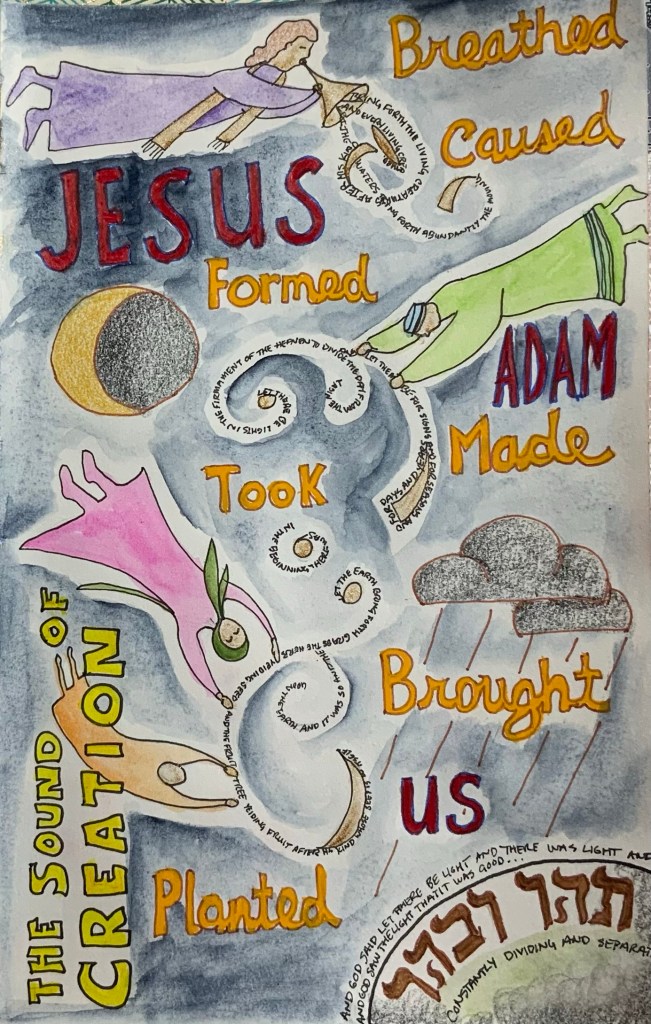 Breathed
BRING FORTH THE LIVING
AND EVERY LIVING
AFTER HIS KIND
WATERS
FORTH ABUNDANTLY THE
Caused
JESUS
Formed
LET THERE BE LIGHTS IN THE FIRMAMENT OF THE HEAVEN TO DIVIDE THE DAY FROM THE NIGHT
LET THEM BE FOR SIGNS AND FOR SEASONS AND FOR DAYS AND YEARS
ADAM
Made
TOOK
IN THE BEGINNING, THERE WAS
LET THE EARTH BRING FORTH GRASS THE HERB YEILDING SEED
AND THE FRUIT TREE YEIDING FRUIT AFTER HIS KIND WHOSE SEED IS
UPON THE EARTH AND IT WAS SO
Brought
us
THE SOUND OF
CREATION
Planted
AND GOD SAID LET THERE BE LIGHT AND THERE WAS LIGHT AND
AND GOD SAW THE LIGHT THAT IT WAS GOOD...
תהו ובהו
CONSTANTLY DIVIDING AND SEPARAT